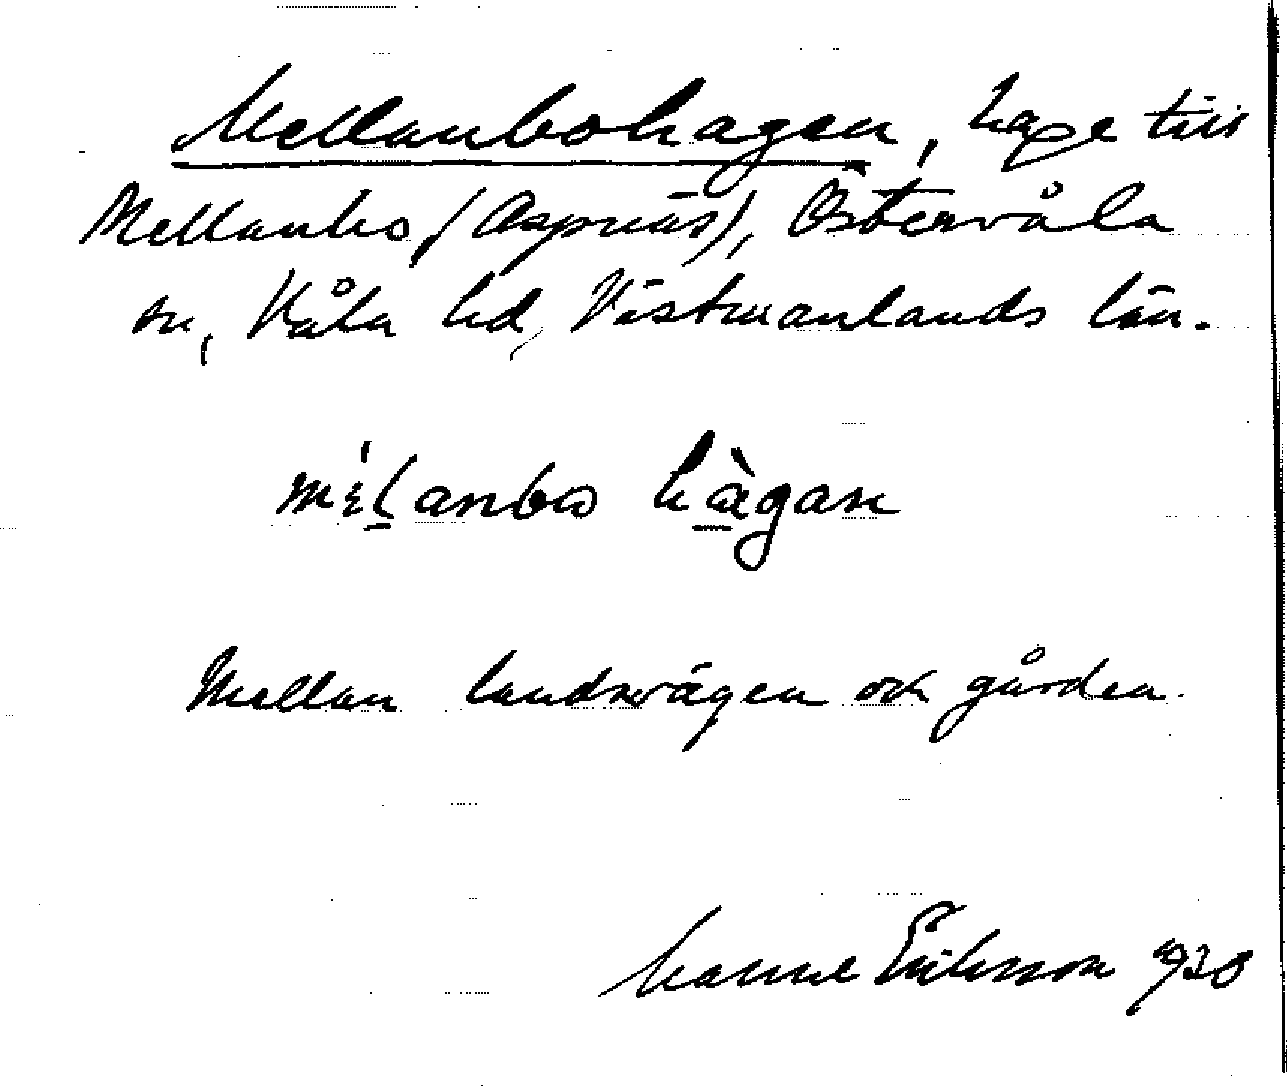 Mellanbohagen, hage till
Mellanbo (Aspnäs), Östervåla
sn, Våla hd, Västmanlands län.
mèlanbo hàgan
Mellan landsvägen och gården.
Manne Eriksson 1938